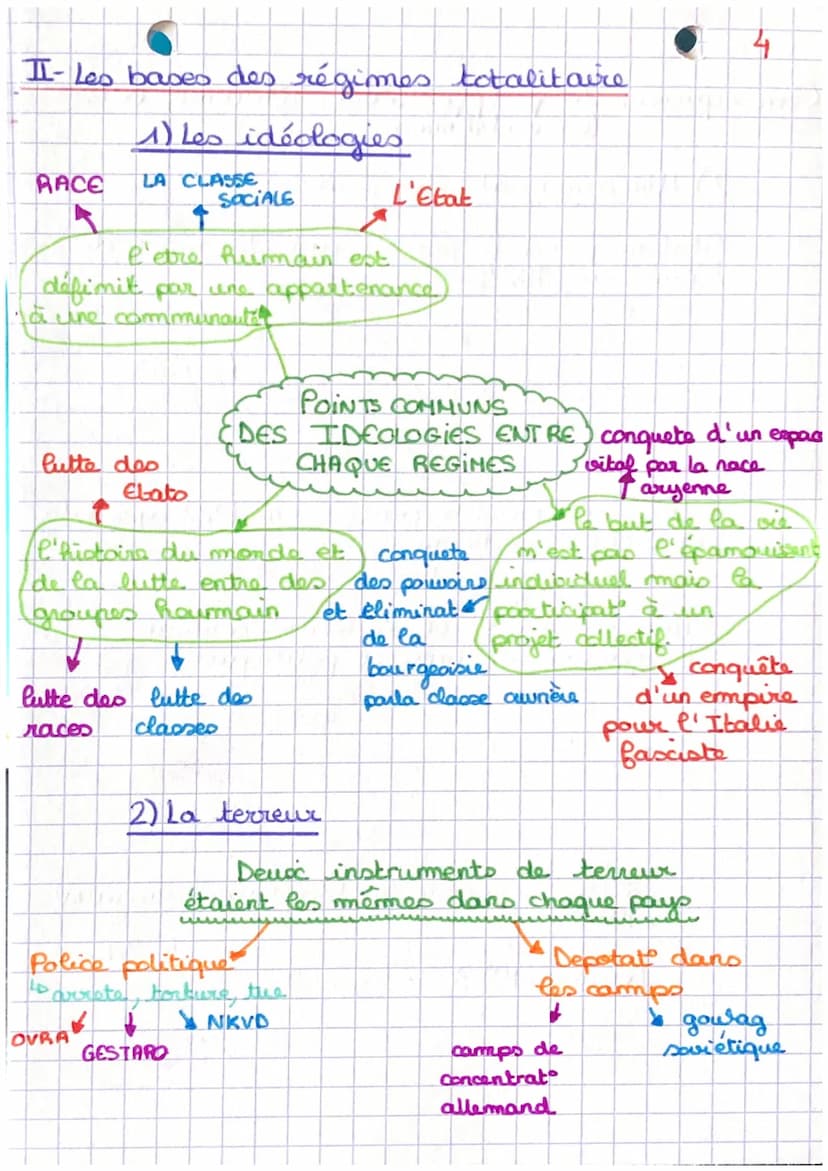 4
II- Les bases des régimes totalitaire
1) Les idéologies
RACE
LA CLASSE
SOCIALE
L'Etat
l'etre humain est
définit par une appartenance
à une communauté
POINTS COMMUNS
DES IDEOLOGIES ENTRE
CHAQUE REGIMES
conquete d'un espac
vital par la race
aryenne
lutte des
Etats
l'histoire du monde et
de la lutte entre des
groupes houmain
lutte des
races
lutte des
classes
conquete
des pouvoirs
et éliminat°
de la
bourgeoisie
parla classe ouvrière
le but de la vie
n'est pas l'épanouissent
individuel mais la
participat° à un
projet collectif
conquête
d'un empire
pour l'Italie
fasciste
2) La terreur
Deux instruments de terreur
étaient les mêmes dans chaque pays
Police politique
↳ arrete, torture, tue
OVRA
GESTAPO
NKVD
Depotat° dans
les camps
camps de
concentrat°
allemand
goulag
soviétique